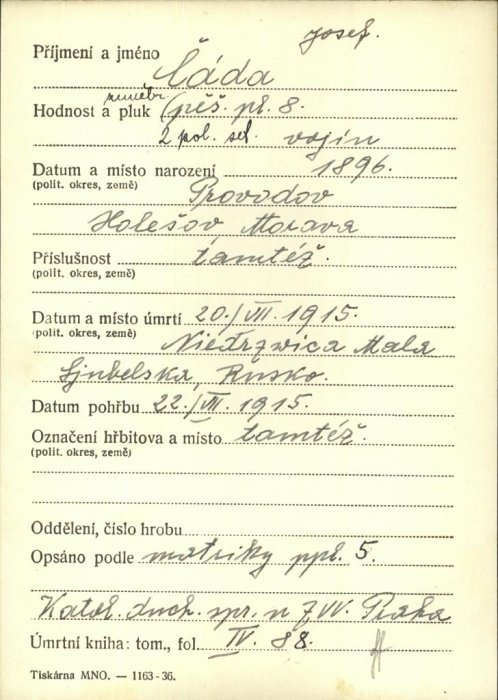 Josef.
Příjmení a jméno Čáda
zeměbr.
Hodnost a pluk (pěš. pl. 8.
2 pol. set. vojín
Datum a místo narození 1896.
(polit. okres, země) Provodov
Holešov, Morava
Příslušnost tamtéž.
(polit. okres, země)
Datum a místo úmrtí 20./VII. 1915.
(polit. okres, země) Niedrzwica Mala
Ljubelska, Rusko.
Datum pohřbu 22./VII. 1915.
Označení hřbitova a místo tamtéž.
(polit. okres, země)
Oddělení, číslo hrobu
Opsáno podle matriky ppl. 5.
Katol. duch. spr. n ZVV. Praha
Úmrtní kniha: tom., fol. IV. 88.
Tiskárna MNO. — 1163-36.